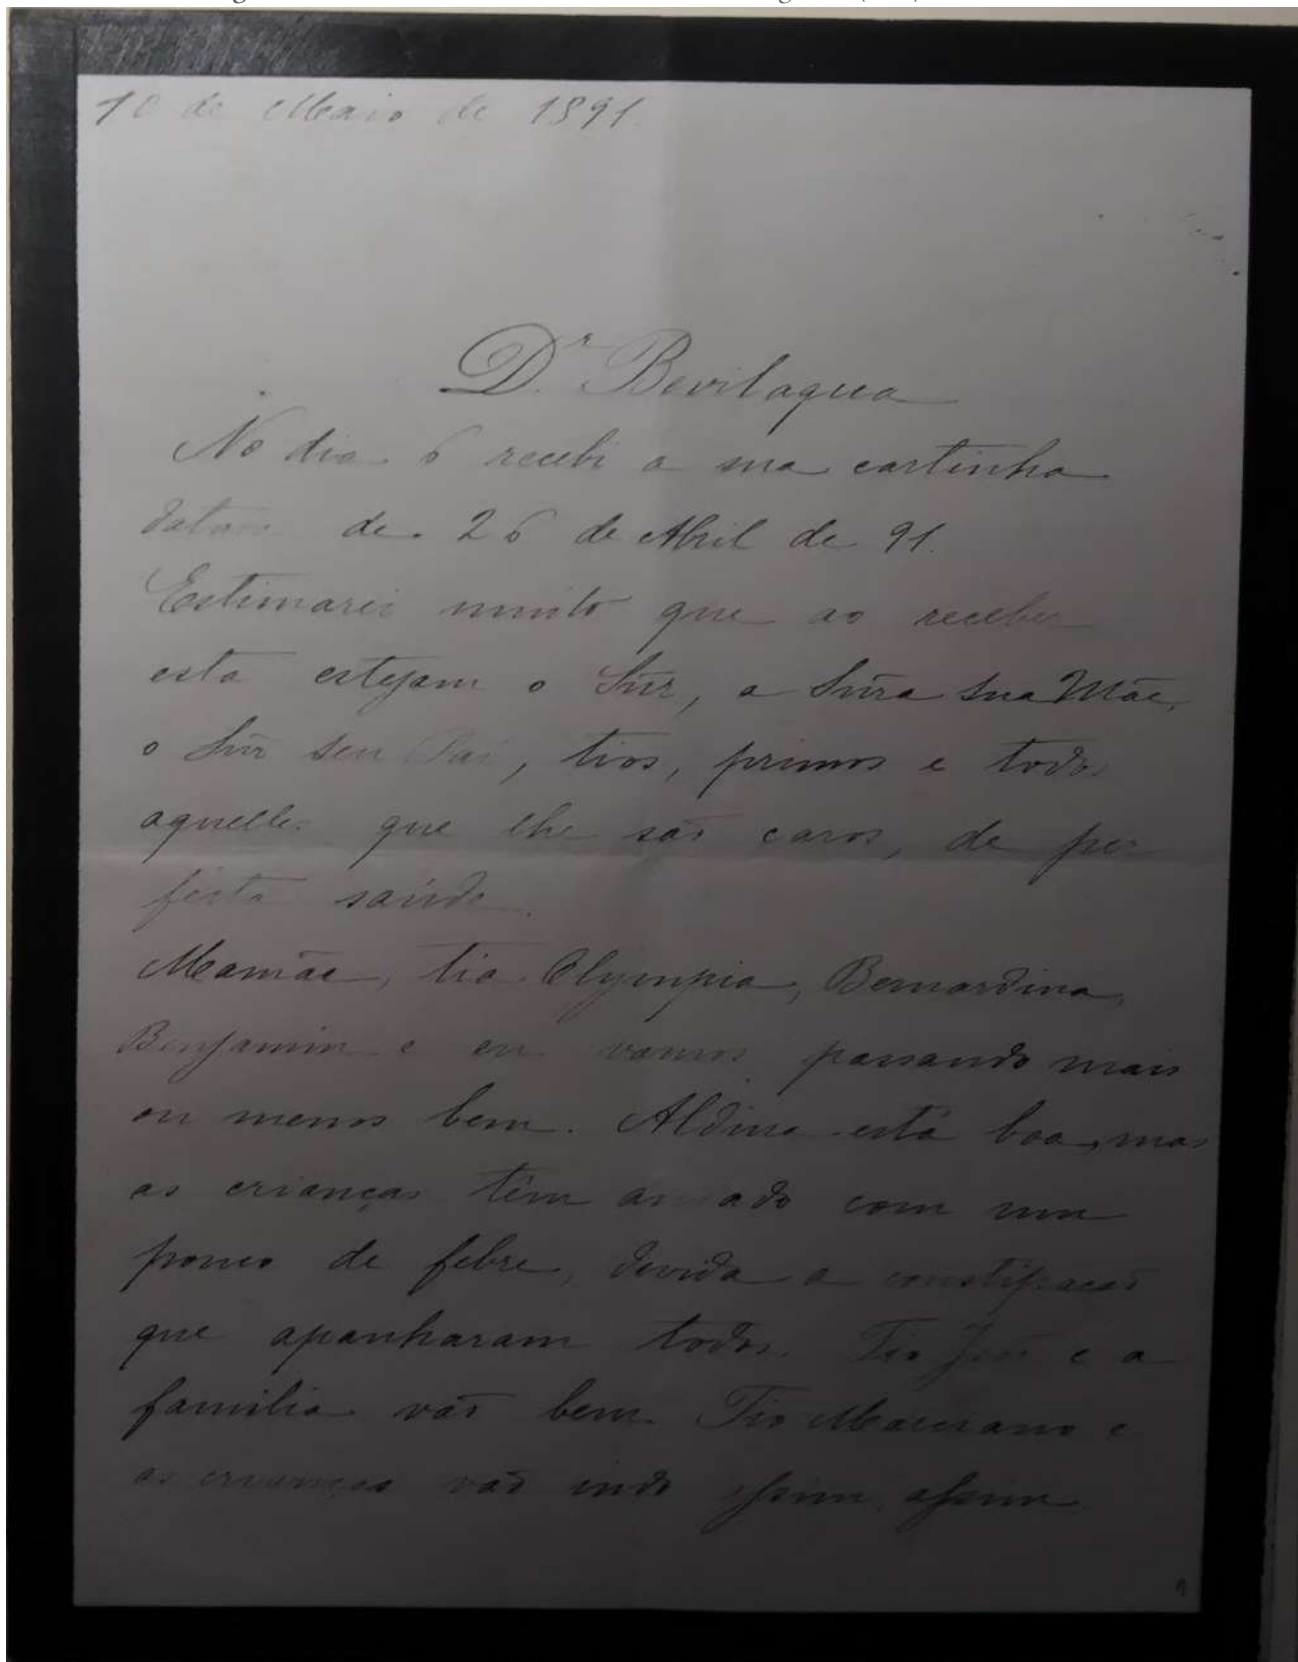 10 de Maio de 1891.
Dr. Bevilaqua
No dia 6 recebi a sua cartinha
datada de 26 de Abril de 91.
Estimarei muito que ao receber
esta estejam o Snr, a Snra sua Mãe,
o Snr seu Pai, tios, primos e todos
aquelles que lhe são caros, de per
feita saúde.
Mamãe, tia Olympia, Bernardina,
Benjamin e eu vamos passando mais
ou menos bem. Aldina está boa, mas
as crianças têm andado com um
pouco de febre, devida a constipação
que apanharam todos. Tio José e a
familia vão bem. Tio Marciano e
as crianças vão indo assim, assim